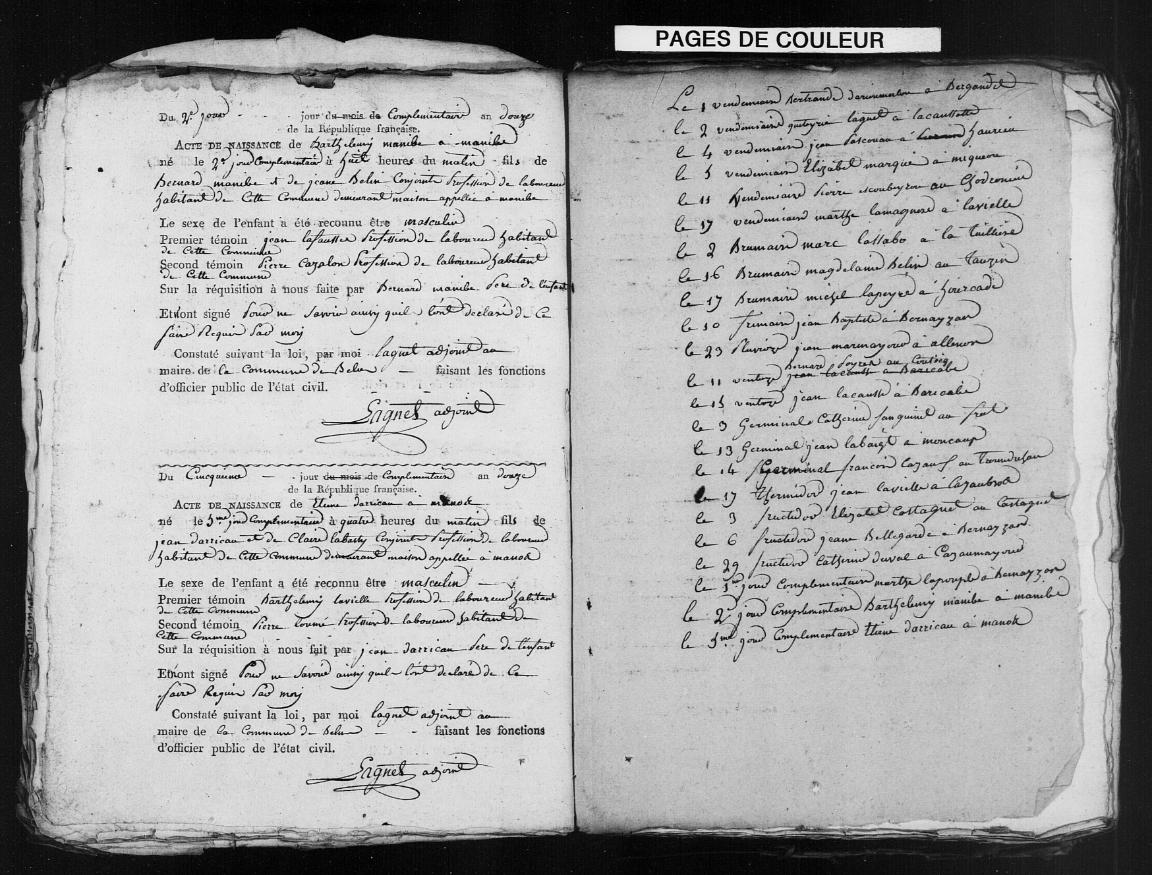 PAGES DE COULEUR
Du 2e jour jour du mois de Complementaire an douze
de la République française.
ACTE DE NAISSANCE de Barthelemy manibe a manibe
né le 2e jour Complementaire à huit heures du matin fils de
Bernard manibe et de jeane Belin Conjoints Profession de laboureur
habitant de Cette Commune demeurant maison appellée a manibe
Le sexe de l'enfant a été reconnu être masculin
Premier témoin jean lafausse Profession de laboureur habitant
de Cette Commune
Second témoin Pierre Cazalon Profession de laboureur habitant
de Cette Commune
Sur la réquisition à nous faite par Bernard manibe Pere de l'enfant
Et ont signé Pour ne Savoir ainsy quil l'ont declaré de Ce
faire Requis Par moy
Constaté suivant la loi, par moi laguet adjoint au
maire de la Commune de faisant les fonctions
d'officier public de l'état civil.
adjoint
Du Cincquieme jour du mois de Complementaire an douze
de la République française.
ACTE DE NAISSANCE de darricau a manok
né le 5me jour Complementaire à quatre heures du matin fils de
jean darricau et de Claire labasty Conjoint Profession de laboureur
habitant de Cette Commune demeurant maison appellée a manok
Le sexe de l'enfant a été reconnu être masculin
Premier témoin Barthelemy lavielle Profession de laboureur habitant
de Cette Commune
Second témoin Pierre Profession de laboureur habitant de
Cette Commune
Sur la réquisition à nous fait par jean darricau Pere de l'enfant
Et ont signé Pour ne Savoir ainsy quil l'ont declaré de Ce
faire Requis Par moy
Constaté suivant la loi, par moi laguet adjoint au
maire de la Commune de faisant les fonctions
d'officier public de l'état civil.
adjoint
Le 1 vendemiaire Bertrande à
le 2 vendemiaire laguet à lacaussette
le 4 vendemiaire jean à
le 5 vendemiaire Elizabet marque à
le 11 Vendemiaire Pierre au
le 17 vendemiaire marthe à lavielle
le 2 Brumaire marc lassabe à la
le 16 Brumaire magdelaine Belin au Tauzin
le 17 Brumaire michel lapeyre à hourcade
le 10 frimaire jean Baptiste à Bernazzan
le 23 Pluvioze jean à
Bernard au
le 11 ventoze jean lacausse à Baricabe
le 15 ventoze jean lacausse à Baricabe
le 3 Germinal Catherine au
le 13 Germinal jean à
le 14 Germinal françois au
le 17 thermidor jean lavielle à
le 3 fructidor Elizabet Castagnet au Castagnet
le 6 fructidor jeane Bellegarde à Bernazzan
le 29 fructidor Catherine duval à Cazaumayou
le 1er jour Complementaire marthe à Bernazzan
le 2e jour Complementaire Barthelemy manibe à manibe
le 5me jour Complementaire darricau à manok